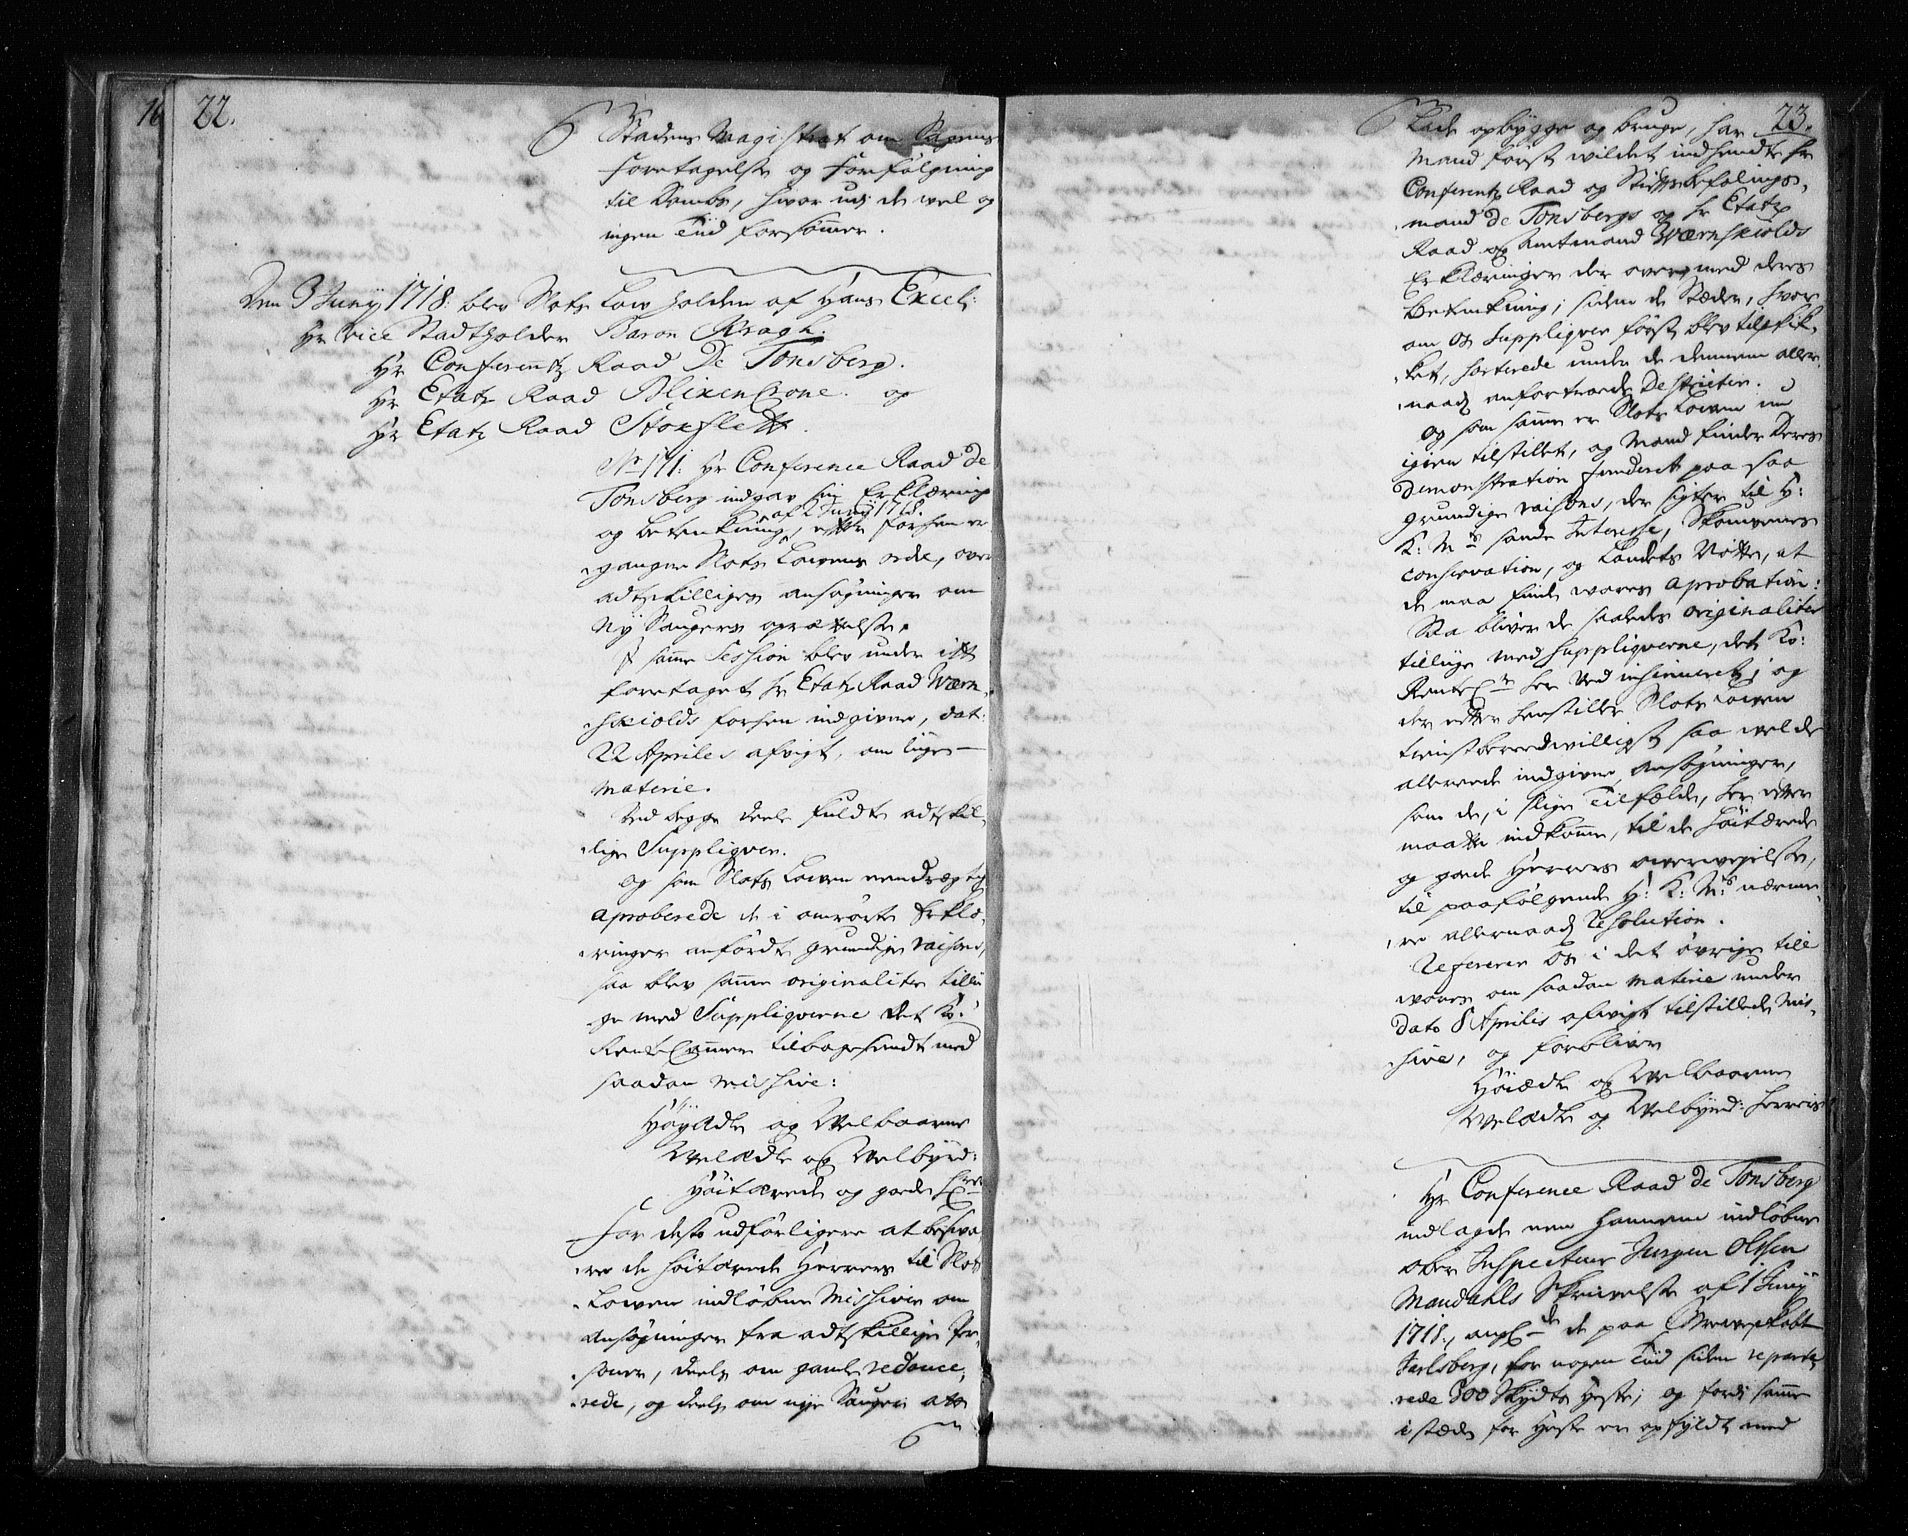 22.
Stadens Magistrat om Sagens
Foretagelse og Forfølgning
til Dombs, hvor udj de vel og
ingen Tiid forsømer.
Den 3 Juny 1718. blev Slots Low holden af Hans Excel:
Hr Vice Stadtholder Baron Kragh.
Hr Conferentz Raad De Tonsberg.
Hr Etatz Raad Blixencrone. og
Hr Etatz Raad Stokflett.
No 171: Hr Conference Raad de
Tonsberg indgav sin Erklæring
af 2 Juny 1718.
og betenkning, efter forhen er-
gangen Slots Lowens ordre, over
adtskillige ansøgninger om
Ny Saugers oprettelse.
J samme Session blev under et
foretaget hr Etatz Raad Wærn-
skiolds forhen indgivne, dat:
22 Aprilis afvigt, om liige
materie.
Ved begge deele fuldte adtskil-
lige Suppliquer.
Og som Slots Lowen eendrægtig
aproberede de i omrørte Erklæ-
ringer anførdte grundige raisons,
saa blev samme originaliter tillii-
ge med Suppliquerne det Ko:
Rente Cammer tilbagesendt med
saadan missive:
Høyædle og Welbaarne
Welædle og Welbyrd:
Høitærede og gode Herrer
For desto udførligere at besva-
re de høitærede Herrers til Slots
Lowen indløbne Missiver om
Ansøgninger fra adtskillige Per-
soner, deels om gamle reduce-
rede, og deels om nye Sauger att
23.
lade opbygge og bruge, har
Mand først wildet indhendte hr
Conferentz Raad og Stiftsbefalings-
mand De Tonsbergs og hr Etatz
Raad og Amtmand Wærnskiolds
Erklæringer der over med deres
Betenkning; siden de Stæder, hvor
om os Suppliquer først blev tilskik-
ket, sorterede under de dennem aller-
naad anfortroede Destricter.
Og som samme er Slots Lowen nu
igien tilstillet, og Mand finder deres
demonstration funderet paa saa
grundige raisons, der sigter til H:
K: Mts sande Interesse, Skovernes
conservation, og Landets Nøtte, at
de maa finde wores aprobation:
Saa bliver de saaledes originaliter
tillige med Suppliquerne, det Ko:
Rente Cr her ved insinueret; og
der efter henstiller Slots Lowen
tienstbereedwilligst saa wel de
allereede indgivne, Ansøgninger,
som de, i slige Tilfælde, her efter
maatte indkomme, til de Høitærede
og gode Herrers overweyelse,
til paafølgende H: K: Mts nærme-
re allernaad Resolution.
Refererer os i det øvrige till
wores om saadan materie under
dato 8 Aprilis afvigt tilstillede Mis-
sive, og forbliver
Høiædle og Welbaarne
Welædle og Welbyrd: Herrers
Hr Conference Raad de Tonsberg
indlagde een hannem indløbne
ober Inspecteur Jurgen Olssen
Mandahls Skrivelse af 1 Juny
1718, angde de paa Grevskabt
Jarlsberg, for nogen Tiid siden reparte-
rede 300 Skydts Heste; og fordi samme
i stæde for Heste er opfyldt med